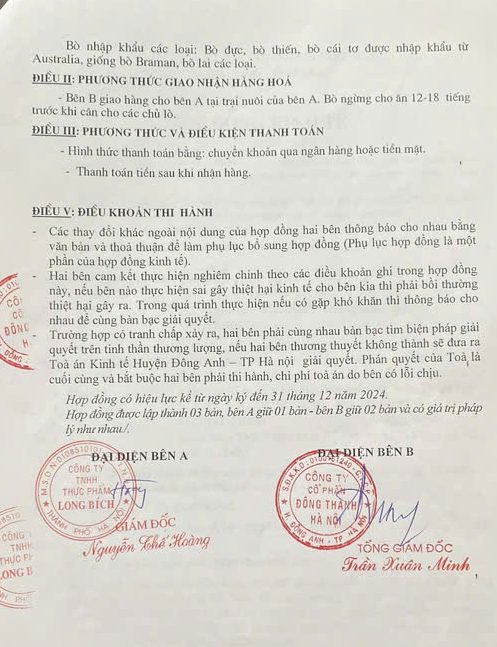 Bò nhập khẩu các loại: Bò đực, bò thiến, bò cái tơ được nhập khẩu từ
Australia, giống bò Braman, bò lai các loại.
ĐIỀU II: PHƯƠNG THỨC GIAO NHẬN HÀNG HOÁ
- Bên B giao hàng cho bên A tại trại nuôi của bên A. Bò ngừng cho ăn 12-18 tiếng
trước khi cân cho các chủ lò.
ĐIỀU III: PHƯƠNG THỨC VÀ ĐIỀU KIỆN THANH TOÁN
- Hình thức thanh toán bằng: chuyển khoản qua ngân hàng hoặc tiền mặt.
- Thanh toán tiền sau khi nhận hàng.
ĐIỀU V: ĐIỀU KHOẢN THI HÀNH
- Các thay đổi khác ngoài nội dung của hợp đồng hai bên thông báo cho nhau bằng
văn bản và thoả thuận để làm phụ lục bổ sung hợp đồng (Phụ lục hợp đồng là một
phần của hợp đồng kinh tế).
- Hai bên cam kết thực hiện nghiêm chỉnh theo các điều khoản ghi trong hợp đồng
này, nếu bên nào thực hiện sai gây thiệt hại kinh tế cho bên kia thì phải bồi thường
thiệt hại gây ra. Trong quá trình thực hiện nếu có gặp khó khăn thì thông báo cho
nhau để cùng bàn bạc giải quyết.
- Trường hợp có tranh chấp xảy ra, hai bên phải cùng nhau bàn bạc tìm biện pháp giải
quyết trên tinh thần thương lượng, nếu hai bên thương thuyết không thành sẽ đưa ra
Toà án Kinh tế Huyện Đông Anh – TP Hà Nội giải quyết. Phán quyết của Toà là
cuối cùng và bắt buộc hai bên phải thi hành, chi phí toà án do bên có lỗi chịu.
Hợp đồng có hiệu lực kể từ ngày ký đến 31 tháng 12 năm 2024.
Hợp đồng được lập thành 03 bản, bên A giữ 01 bản - bên B giữ 02 bản và có giá trị pháp
lý như nhau./.
ĐẠI DIỆN BÊN A
ĐẠI DIỆN BÊN B
CÔNG TY
TNHH
THỰC PHẨM
LONG BÍCH
THÀNH PHỐ HÀ NỘI
GIÁM ĐỐC
Nguyễn Thế Hoàng
CÔNG TY
CỔ PHẦN
ĐÔNG THÀNH
HÀ NỘI
H. ĐÔNG ANH - TP HÀ NỘI
TỔNG GIÁM ĐỐC
Trần Xuân Minh